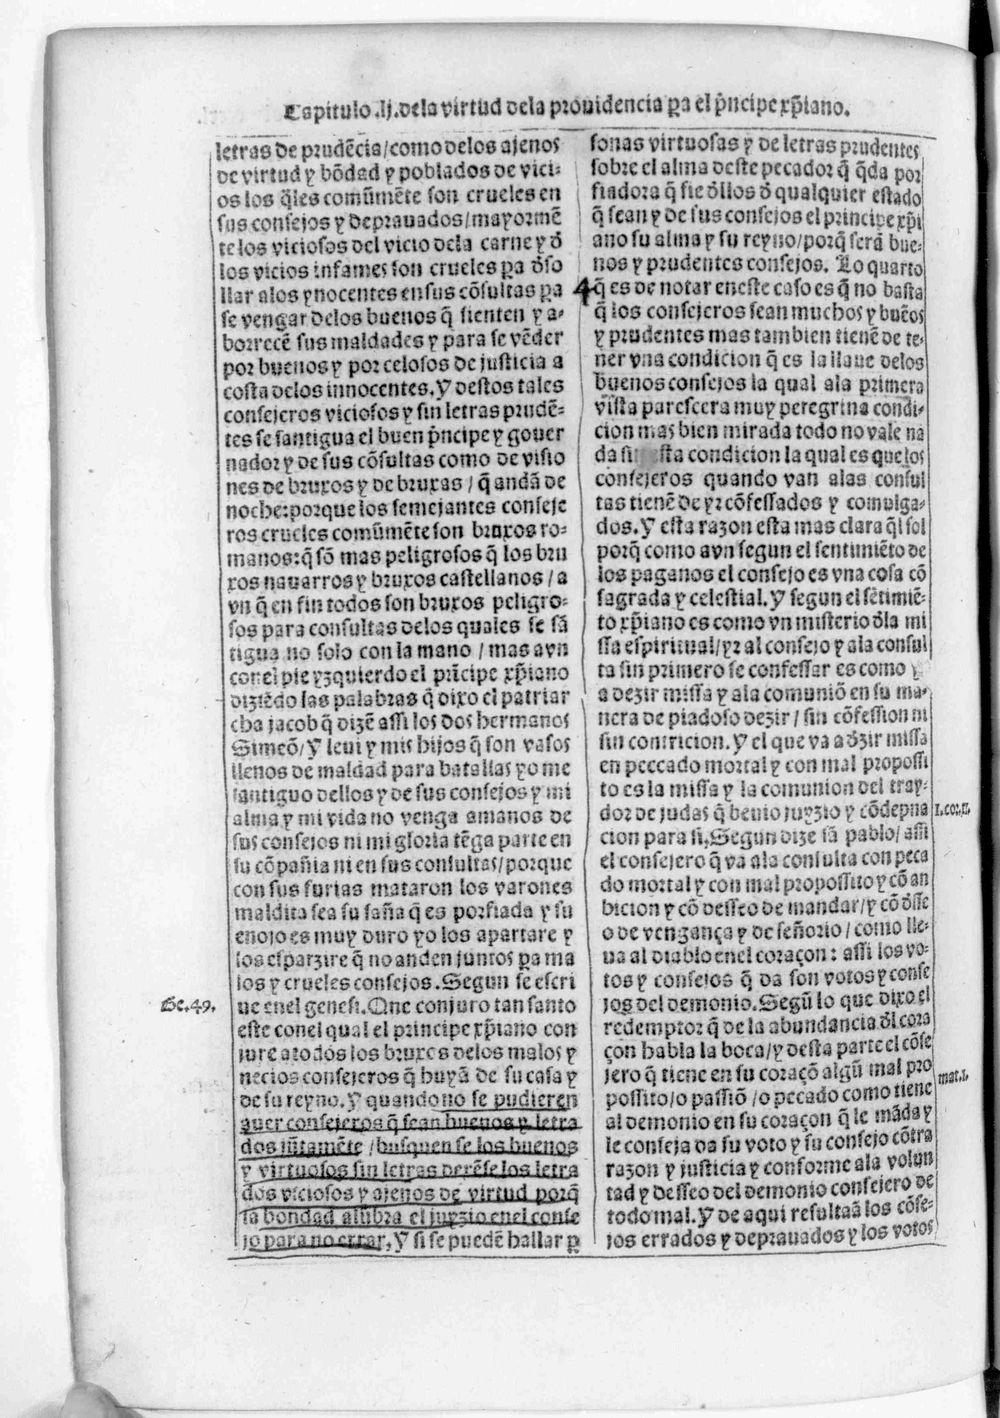 Capitulo .ij. dela virtud dela prouidencia ꝑa el pñcipe xp̃iano.
letras de prudẽcia/como delos ajenos
de virtud y bõdad y poblados de vici-
os los q̃les comũmẽte son crueles en
sus consejos y deprauados/mayormẽ
te los viciosos del vicio dela carne y d̃
los vicios infames son crueles ꝑa d̃so
llar alos ynocentes en sus cõsultas ꝑa
se vengar delos buenos q̃ sienten y a-
borrecẽ sus maldades y para se vẽder
por buenos y por celosos de justicia a
costa delos innocentes. Y destos tales
consejeros viciosos y sin letras prudẽ-
tes se santigua el buen pñcipe y gouer
nador y de sus cõsultas como de visio
nes de bruxos y de bruxas/ q̃ andã de
noche: porque los semejantes conseje
ros crueles comũmẽte son bruxos ro-
manos: q̃ sõ mas peligrosos q̃ los bru
xos nauarros y bruxos castellanos/ a
vn q̃ en fin todos son bruxos peligro-
sos para consultas delos quales se sã
tigua no solo con la mano/ mas avn
con el pie yzquierdo el prĩcipe xp̃iano
diziẽdo las palabras q̃ dixo el patriar
cha jacob q̃ dizẽ assi los dos hermanos
Simeõ/ Y leui y mis hijos q̃ son vasos
llenos de maldad para batallas yo me
santiguo dellos y de sus consejos y mi
alma y mi vida no venga amanos de
sus consejos ni mi gloria tẽga parte en
su cõpañia ni en sus consultas/porque
con sus furias mataron los varones
maldita sea su saña q̃ es porfiada y su
enojo es muy duro yo los apartare y
los esparzire q̃ no anden juntos ꝑa ma
los y crueles consejos. Segun se escri
ue enel genesi. One conjuro tan santo
Ge.49.
este conel qual el principe xp̃iano con
jure atodos los bruxos delos malos y
necios consejeros q̃ huyã de su casa y
de su reyno. Y quando no se pudieren
auer consejeros q̃ sean buenos y letra
dos jũtamẽte/busquen se los buenos
y virtuosos sin letras dexẽse los letra
dos viciosos y ajenos de virtud porq̃
la bondad alũbra el juyzio enel conse
jo para no errar, Y si se puedẽ hallar ꝑ
sonas virtuosas y de letras prudentes
sobre el alma deste pecador q̃ q̃da por
fiadora q̃ fie d̃llos d̃ qualquier estado
q̃ sean y de sus consejos el principe xp̃i
ano su alma y su reyno/porq̃ serã bue-
nos y prudentes consejos. Lo quarto
4 q̃ es de notar eneste caso es q̃ no basta
q̃ los consejeros sean muchos y buẽos
y prudentes mas tambien tienẽ de te-
ner vna condicion q̃ es la llaue delos
buenos consejos la qual ala primera
vista parescera muy peregrina condi-
cion mas bien mirada todo no vale na
da sin esta condicion la qual es que los
consejeros quando van alas consul
tas tienẽ de yr cõfessados y comulga-
dos. Y esta razon esta mas clara q̃l sol
porq̃ como avn segun el sentimiẽto de
los paganos el consejo es vna cosa cõ
sagrada y celestial. Y segun el sẽtimiẽ-
to xp̃iano es como vn misterio d̃la mi
ssa espiritual/yr al consejo y ala consul
ta sin primero se confessar es como yr
a dezir missa y ala comuniõ en su ma-
nera de piadoso dezir/ sin cõfession ni
sin contricion. Y el que va a d̃zir missa
en peccado mortal y con mal propossi
to es la missa y la comunion del tray-
dor de judas q̃ beuio juyzio y cõdepna
1.cor.11.
cion para si, Segun dize sã pablo/ assi
el consejero q̃ va ala consulta con peca
do mortal y con mal propossito y cõ an
bicion y cõ desseo de mandar/y cõ d̃sse
o de vengança y de señorio/ como lle-
ua al diablo enel coraçon: assi los vo-
tos y consejos q̃ da son votos y conse
jos del demonio. Segũ lo que dixo el
redemptor q̃ de la abundancia d̃l cora
çon habla la boca/y desta parte el cõse
jero q̃ tiene en su coraçõ algũ mal pro
mat.1.
possito/o passiõ/o pecado como tiene
al demonio en su coraçon q̃ le mãda y
le conseja da su voto y su consejo cõtra
razon y justicia y conforme ala volun
tad y desseo del demonio consejero de
todo mal. Y de aqui resultaã los cõse-
jos errados y deprauados y los votos